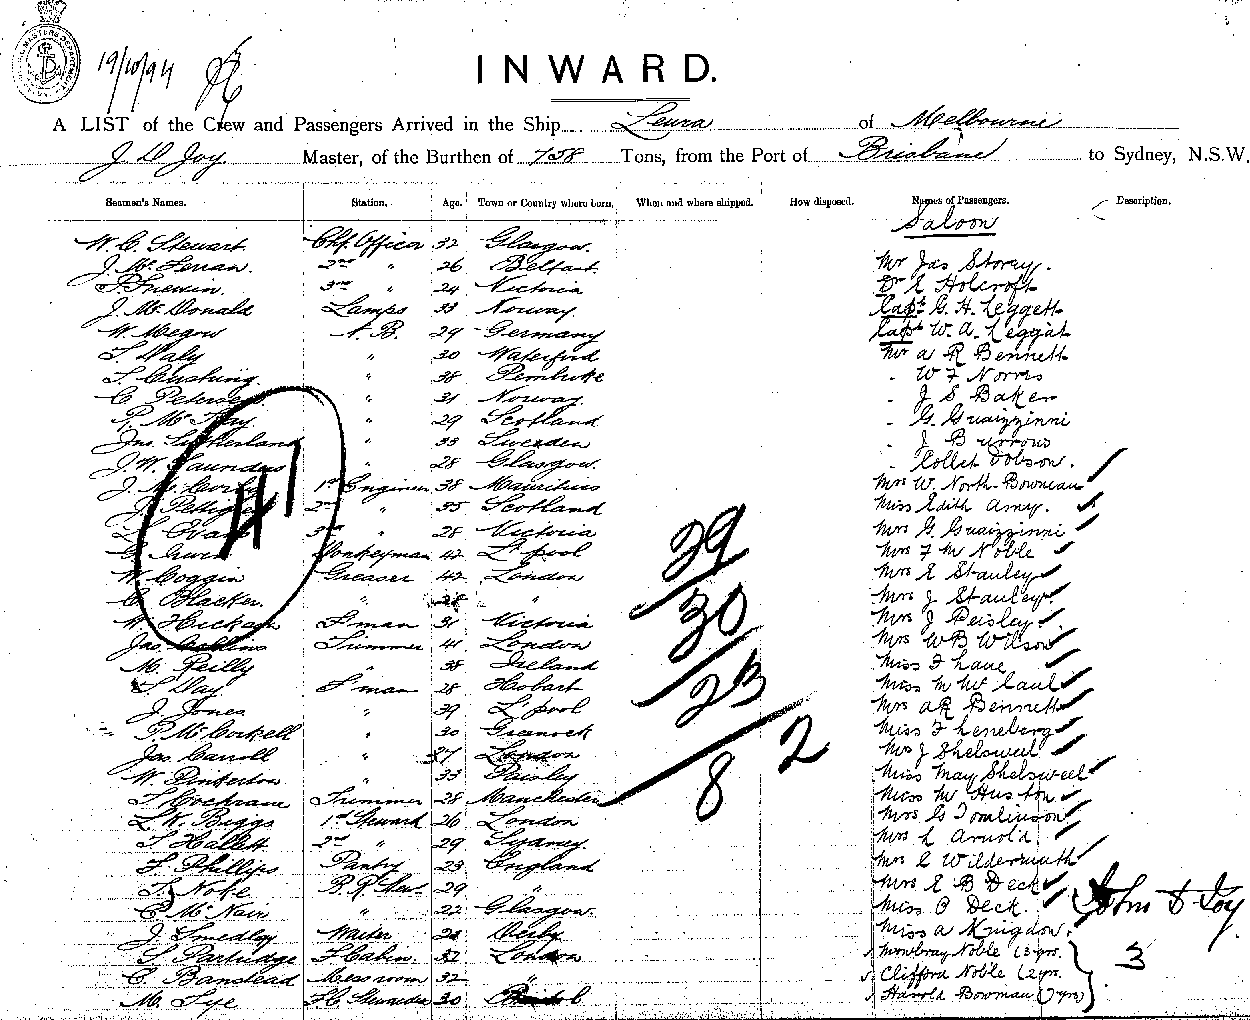 19/10/94
INWARD.
A LIST of the Crew and Passengers Arrived in the Ship Leura of Melbourne
J D Joy Master, of the Burthen of 758 Tons, from the Port of Brisbane to Sydney, N.S.W.
Seamen's Names. Station. Age. Town or Country where born. When and where shipped. How disposed. Names of Passengers. Description.
Saloon
W. C. Stewart Chf. Officer 32 Glasgow.
2nd " 26 Belfast Mr Jas Storey.
3rd " 24 Victoria Dr E Holcroft
J. McDonald Lamps 33 Norway Capt G. H. Leggett
W. Megow A. B. 29 Germany Capt W. A. Leggat
T. Daly " 30 Waterford Mr A R Bennett
T. Cushing " 38 Pembroke " W F Norris
C. Petersen " 31 Norway " J S Baker
" 29 Scotland " G. Guaizzinni
Jno. Sutherland " 33 Sweden " J Burrows
J. W. Saunders " 28 Glasgow " Collet Dobson.
1st Engineer 38 Mauritius Mrs W. North-Bowneau
2nd " 35 Scotland Miss Edith Amy.
Evans 3rd " 28 Victoria Mrs G. Guaizzinni
Donkeyman 42 L'pool Mrs F M Noble
W. Coggin Greaser 42 London Mrs E Stanley
C. Blacker. " 28 " Mrs J Stanley
W. Hickson F'man 31 Victoria Mrs J Peisley
Jas. Collins Trimmer 41 London Mrs W B Wilson
M. Reilly " 38 Ireland Miss F Lane
T. Day F'man 28 Hobart Miss M McCaul
J. Jones " 39 L'pool Mrs A R Bennett
P. McCorkell " 30 Greenock Miss F Leneberg
Jas Carroll " 37 London Mrs J Shelswell
W. Pinkerton " 33 Paisley Miss May Shelswell
T. Cochrane Trimmer 28 Manchester Miss M Huston
L. W. Biggs 1st Steward 26 London Mrs G Tomlinson
T. Hallett 2nd " 29 Sydney Mrs L Arnold
F. Phillips Pantry 23 England Mrs C Wildermuth
29 " Mrs E B Deck
C. McNair " 22 Glasgow Miss O Deck.
J. Smedley Waiter 21 Derby Miss A Kingdon.
S. Partridge F Cabin 32 London Mowbray Noble (3 yrs.
C. Banstead Messroom 32 " Clifford Noble (2 yrs.
M. Tye St. Stewardess 30 Bristol Harold Bowman (7 yrs)
41
29
30
23
8
2
3
John D Joy